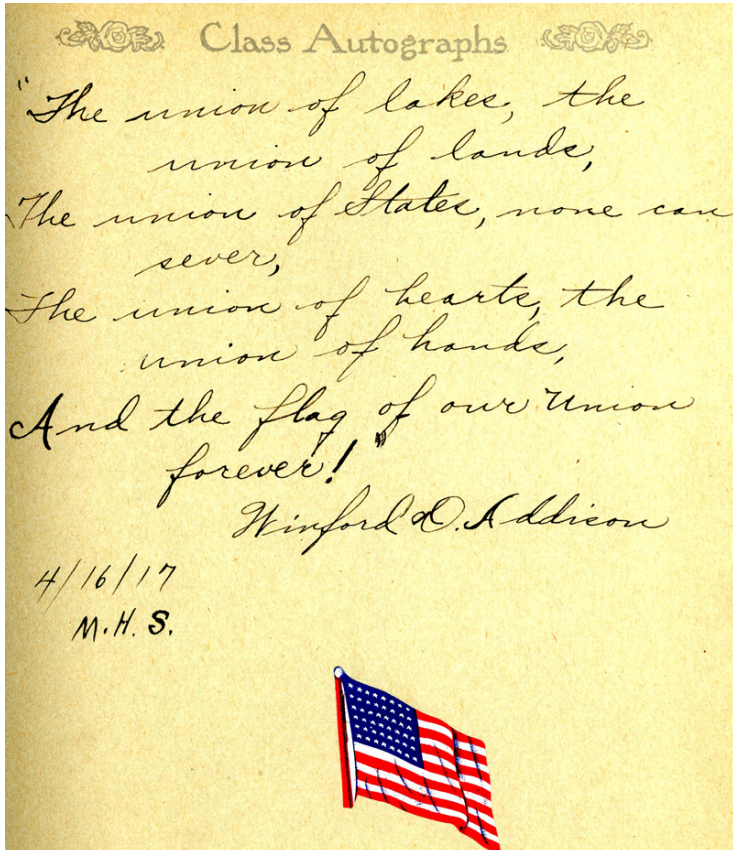 Class Autographs
"The union of lakes, the
union of lands,
The union of States, none can
sever,
The union of hearts, the
union of hands,
And the flag of our Union
forever!"
Winford D. Addison
4/16/17
M.H.S.